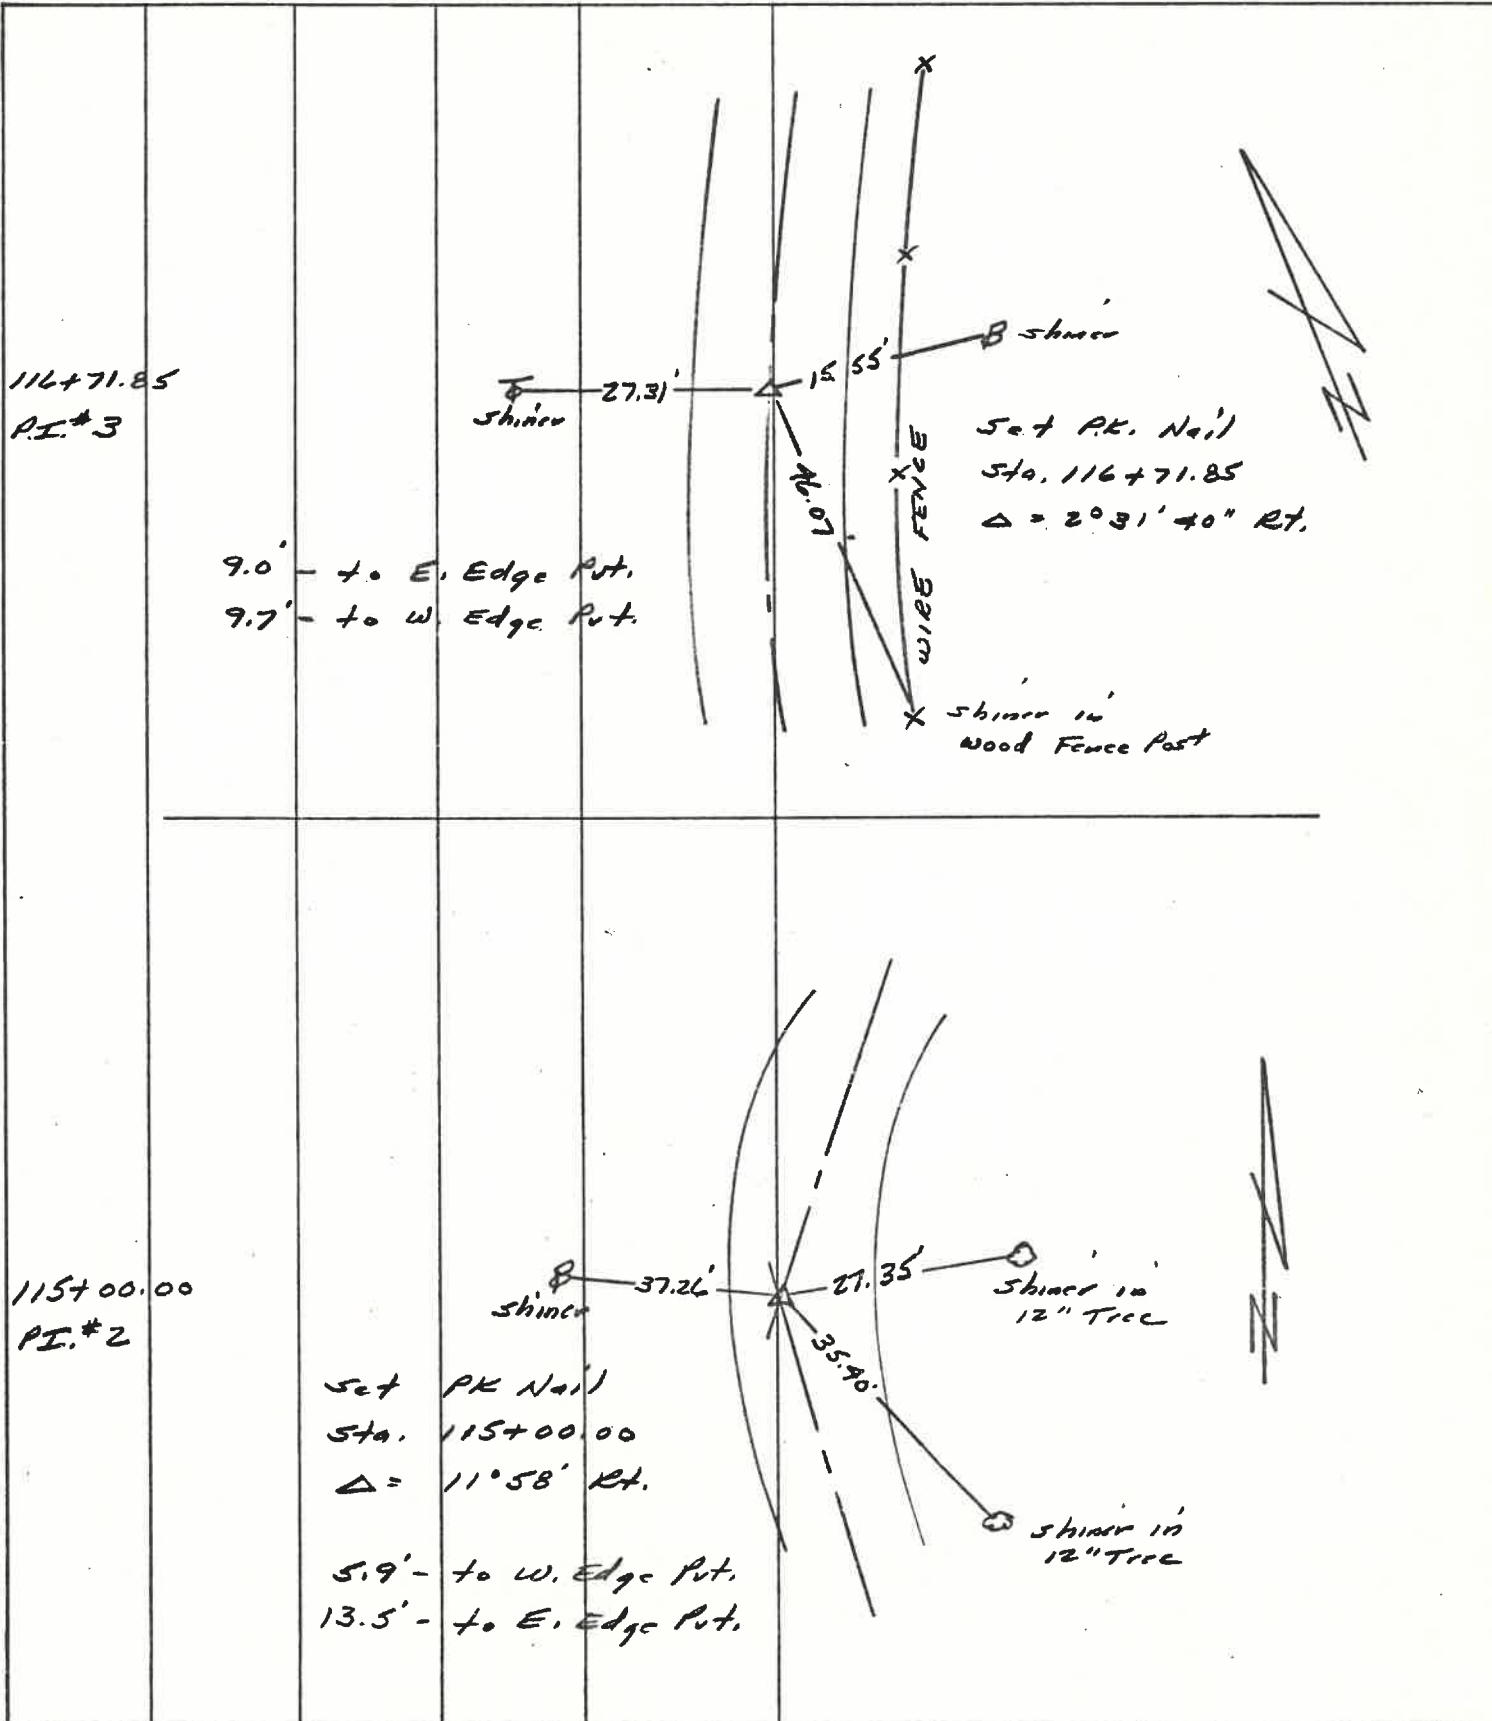 116+71.85
P.I.#3
shiner
27.31'
15.55'
shiner
46.07
WIRE FENCE
Set P.K. Nail
Sta. 116+71.85
Δ = 2°31'40" Rt.
N
9.0' - to E. Edge Pvt.
9.7' - to W. Edge Pvt.
shiner in
Wood Fence Post
115+00.00
P.I.#2
shiner
37.26'
27.35'
shiner in
12" Tree
35.40
N
Set PK Nail
Sta. 115+00.00
Δ = 11°58' Rt.
5.9' - to W. Edge Pvt.
13.5' - to E. Edge Pvt.
shiner in
12" Tree